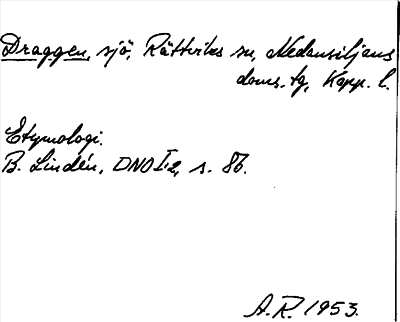 Draggen, sjö, Rättviks sn, Nedansiljans
doms. tg, Kopp. l.
Etymologi.
B. Lindén, DNO I:2, s. 86.
A.R. 1953.